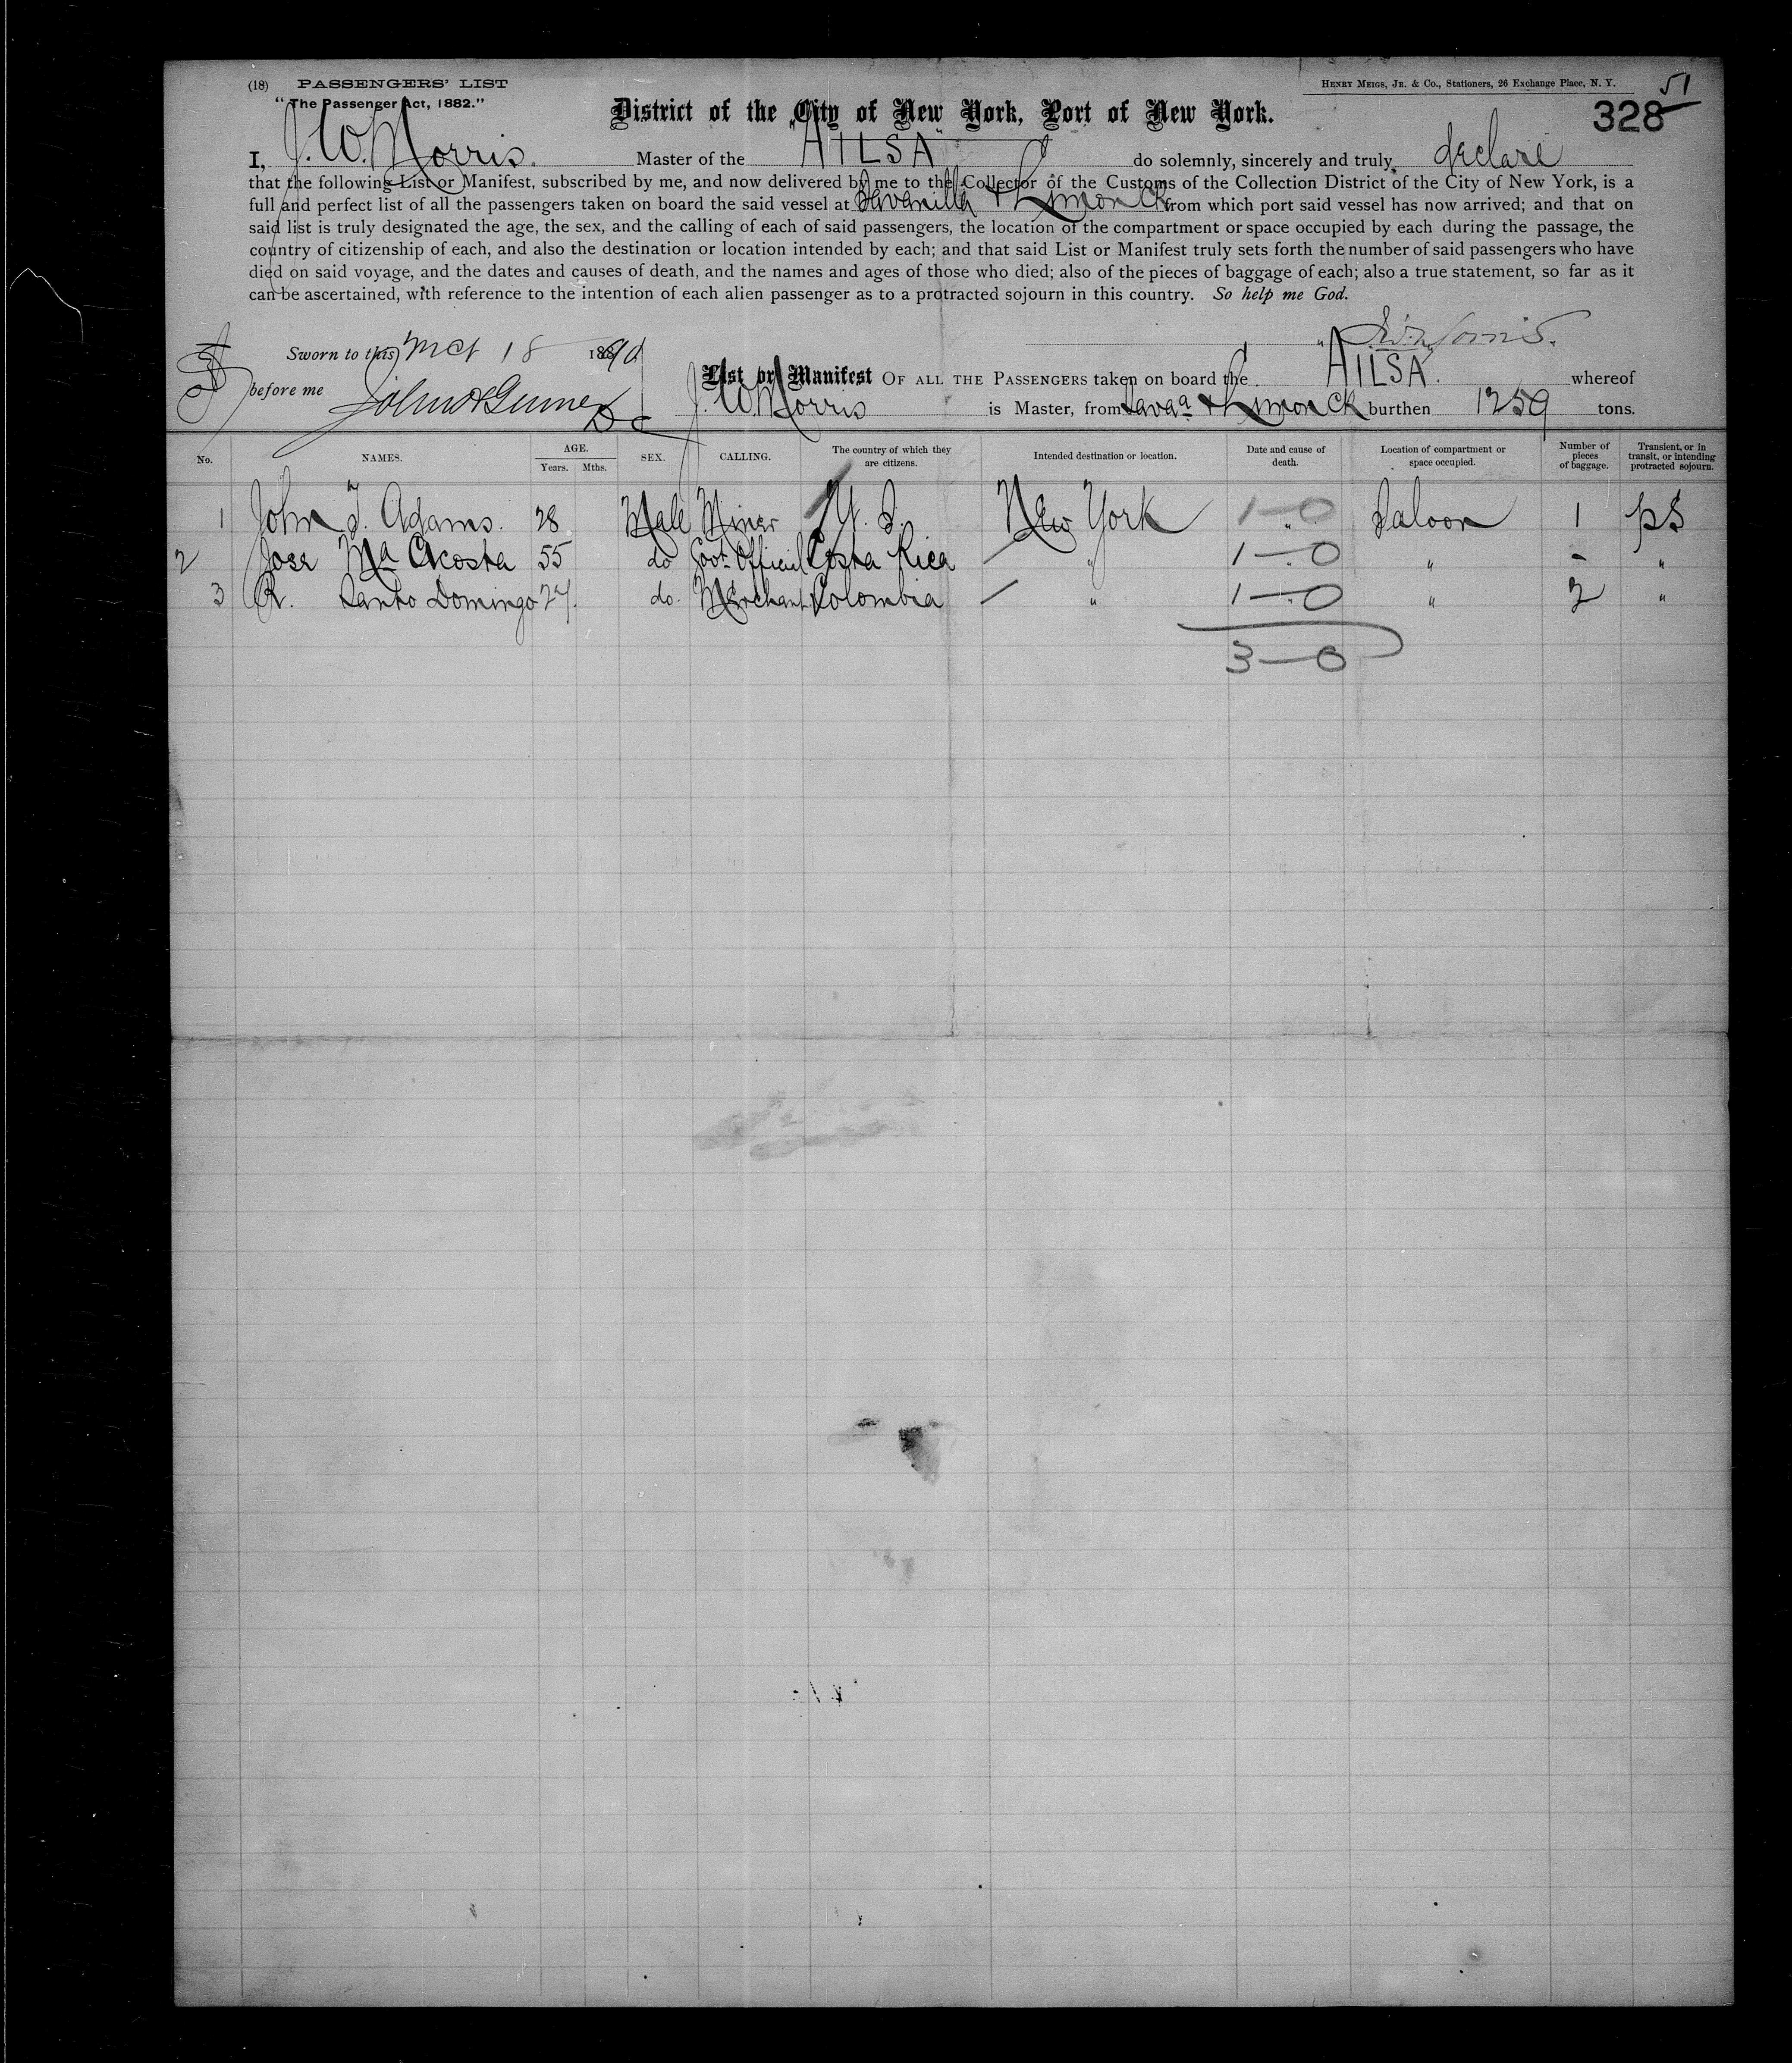 (18) PASSENGERS' LIST
HENRY MEIGS, JR. & CO., Stationers, 26 Exchange Place, N. Y. 51
"The Passenger Act, 1882."
District of the City of New York, Port of New York. 328
I, J. W. Morris. Master of the "AILSA" do solemnly, sincerely and truly declare
that the following List or Manifest, subscribed by me, and now delivered by me to the Collector of the Customs of the Collection District of the City of New York, is a
full and perfect list of all the passengers taken on board the said vessel at Savanilla & Limon CR from which port said vessel has now arrived; and that on
said list is truly designated the age, the sex, and the calling of each of said passengers, the location of the compartment or space occupied by each during the passage, the
country of citizenship of each, and also the destination or location intended by each; and that said List or Manifest truly sets forth the number of said passengers who have
died on said voyage, and the dates and causes of death, and the names and ages of those who died; also of the pieces of baggage of each; also a true statement, so far as it
can be ascertained, with reference to the intention of each alien passenger as to a protracted sojourn in this country. So help me God.
J. W. Morris.
Sworn to this 18 1890
before me
List or Manifest OF ALL THE PASSENGERS taken on board the "AILSA". whereof
J. W. Morris is Master, from Sava & Limon CR burthen 1259 tons.
No. NAMES. AGE. Years. Mths. SEX. CALLING. The country of which they are citizens. Intended destination or location. Date and cause of death. Location of compartment or space occupied. Number of pieces of baggage. Transient, or in transit, or intending protracted sojourn.
1 John T. Adams. 28 Male Miner U. S. New York 1-0 Saloon 1 pS
2 Jose Ma Acosta 55 do Govt Official Costa Rica " 1-0 " - "
3 R. Santo Domingo 24. do. Merchant Colombia " 1-0 " 2 "
3-0